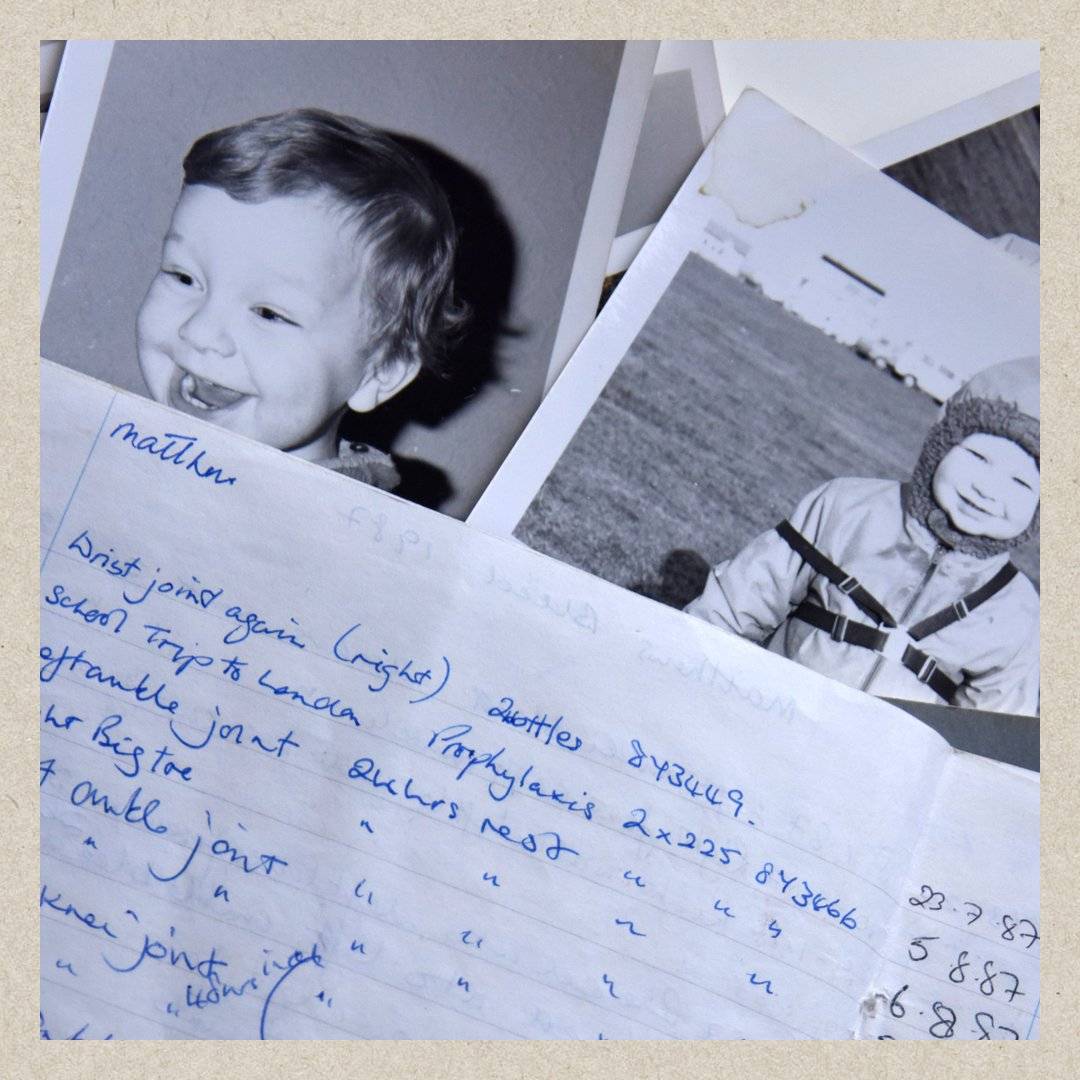 Matthew
Wrist joint again (right) 2 bottles 843449.
School Trip to London Prophylaxis 2x225 843466
ankle joint 24hrs rest " " "
Big toe " " " "
ankle joint " " " "
" " " " "
Knee joint
" "
23.7.87
5 8.87
6.8.87
1987
Bleeds
Matthews